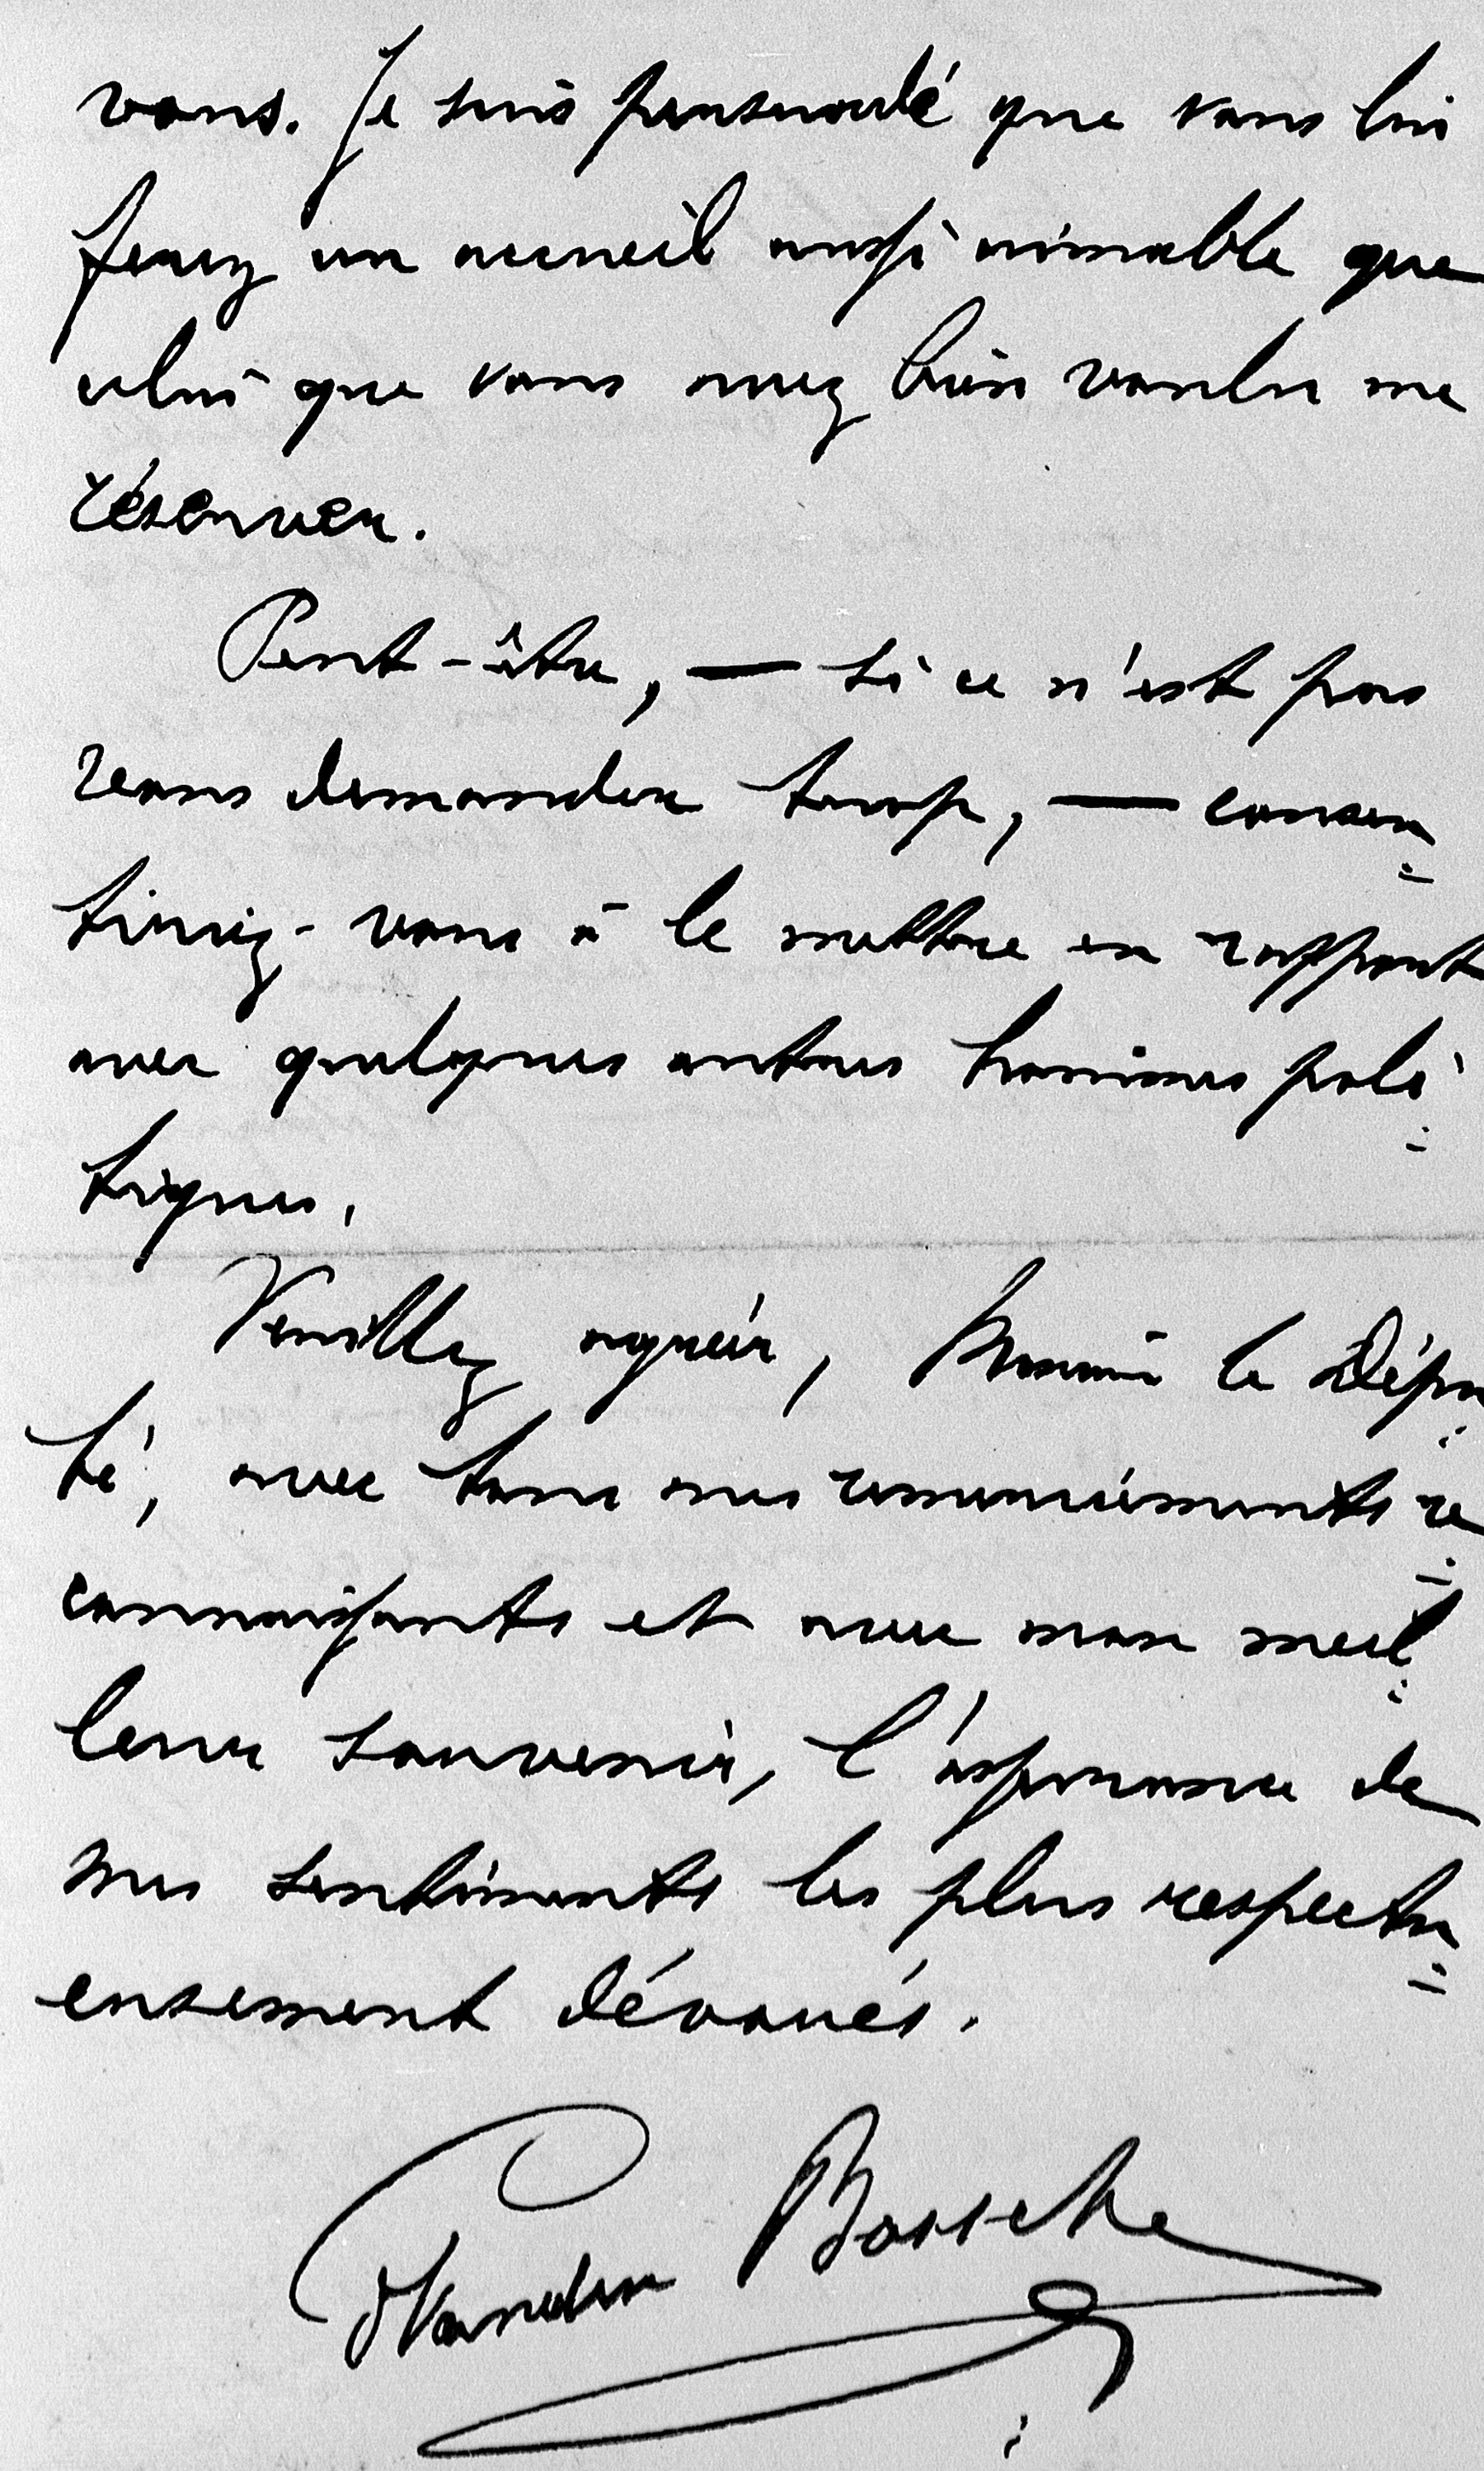 vous. Je suis persuadé que vous lui
ferez un accueil aussi aimable que
celui que vous avez bien voulu me
réserver.
Peut-être, — si ce n'est pas
vous demander trop, — consen=
tiriez-vous à le mettre en rapport
avec quelques autres hommes poli=
tiques.
Veuillez agréer, Monsieur le Dépu=
té, avec tous mes remerciements re=
connaissants et avec mon meil=
leur souvenir, l'assurance de
mes sentiments les plus respectu=
eusement dévoués.
Vanden Bossche